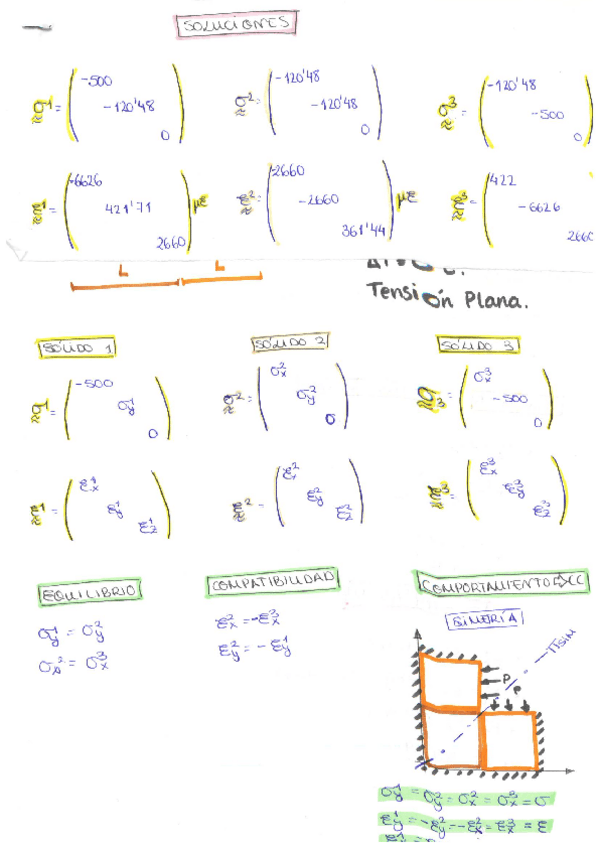 SOLUCIONES
σ¹ = ( -500 -120'48 0 ) σ² = ( -120'48 -120'48 0 ) σ³ = ( -120'48 -500 0 )
ε¹ = ( -6626 421'71 2660 ) με ε² = ( -2660 -2660 361'44 ) με ε³ = ( 422 -6626 2660
L L
Tensión Plana.
SÓLIDO 1 SÓLIDO 2 SÓLIDO 3
σ¹ = ( -500 σy¹ 0 ) σ² = ( σx² σy² 0 ) σ³ = ( σx³ -500 0 )
ε¹ = ( εx¹ εy¹ εz¹ ) ε² = ( εx² εy² εz² ) ε³ = ( εx³ εy³ εz³ )
EQUILIBRIO COMPATIBILIDAD COMPORTAMIENTO ⇒ CC
σy¹ = σy² εx² = -εx³
σx² = σx³ εy² = -εy¹
SIMERÍA
πSIM
P
P
σy¹ = σy² = σx² = σx³ = σ
εy¹ = -εy² = -εx² = εx³ = ε